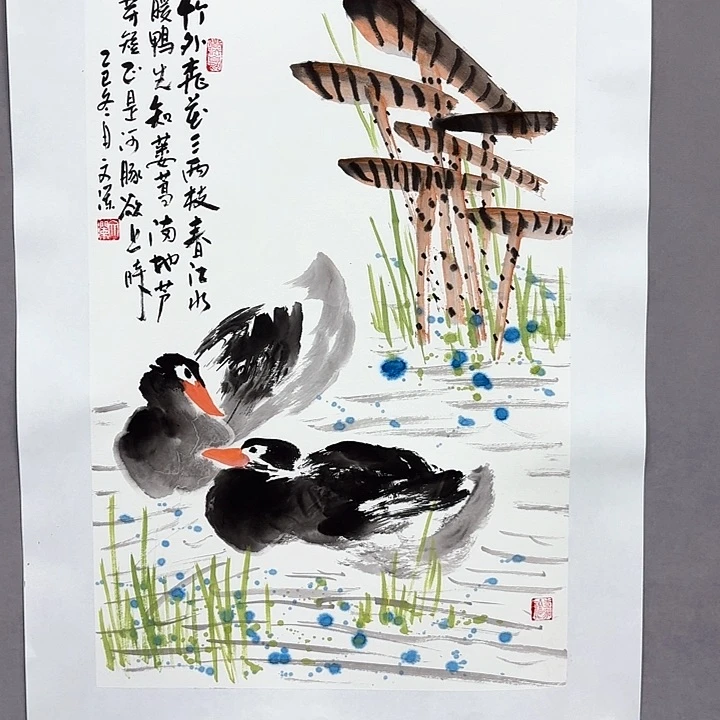 竹外桃花三两枝春江水
暖鴨先知蔞蒿满地芦
芽短正是河豚欲上時
乙巳冬月文